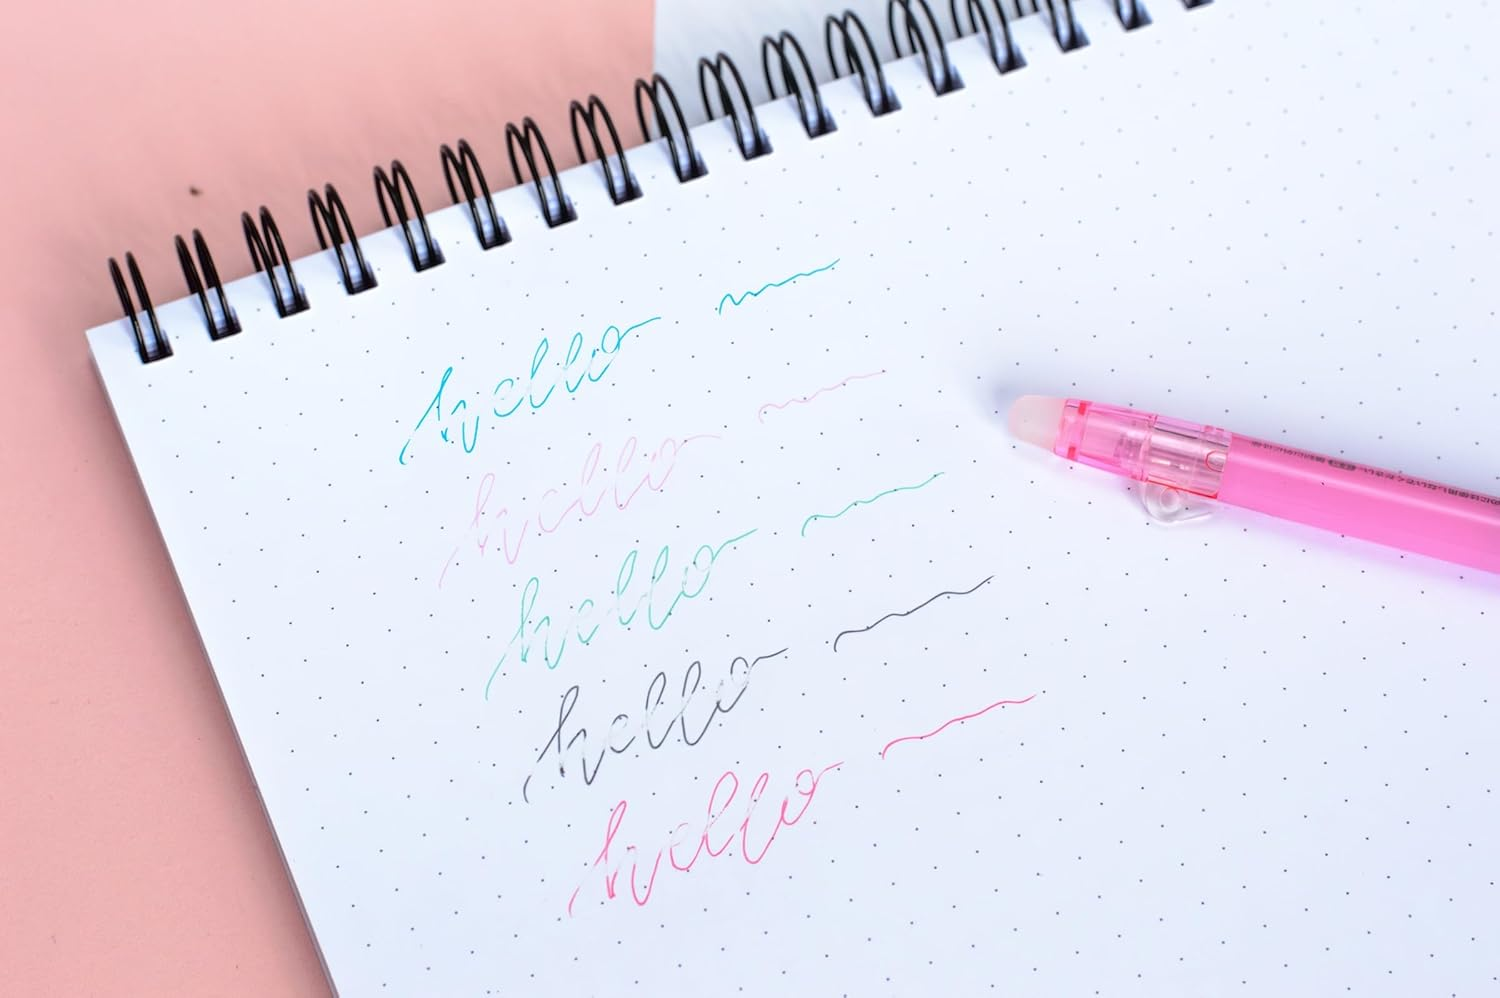 hello
hello
hello
hello
hello